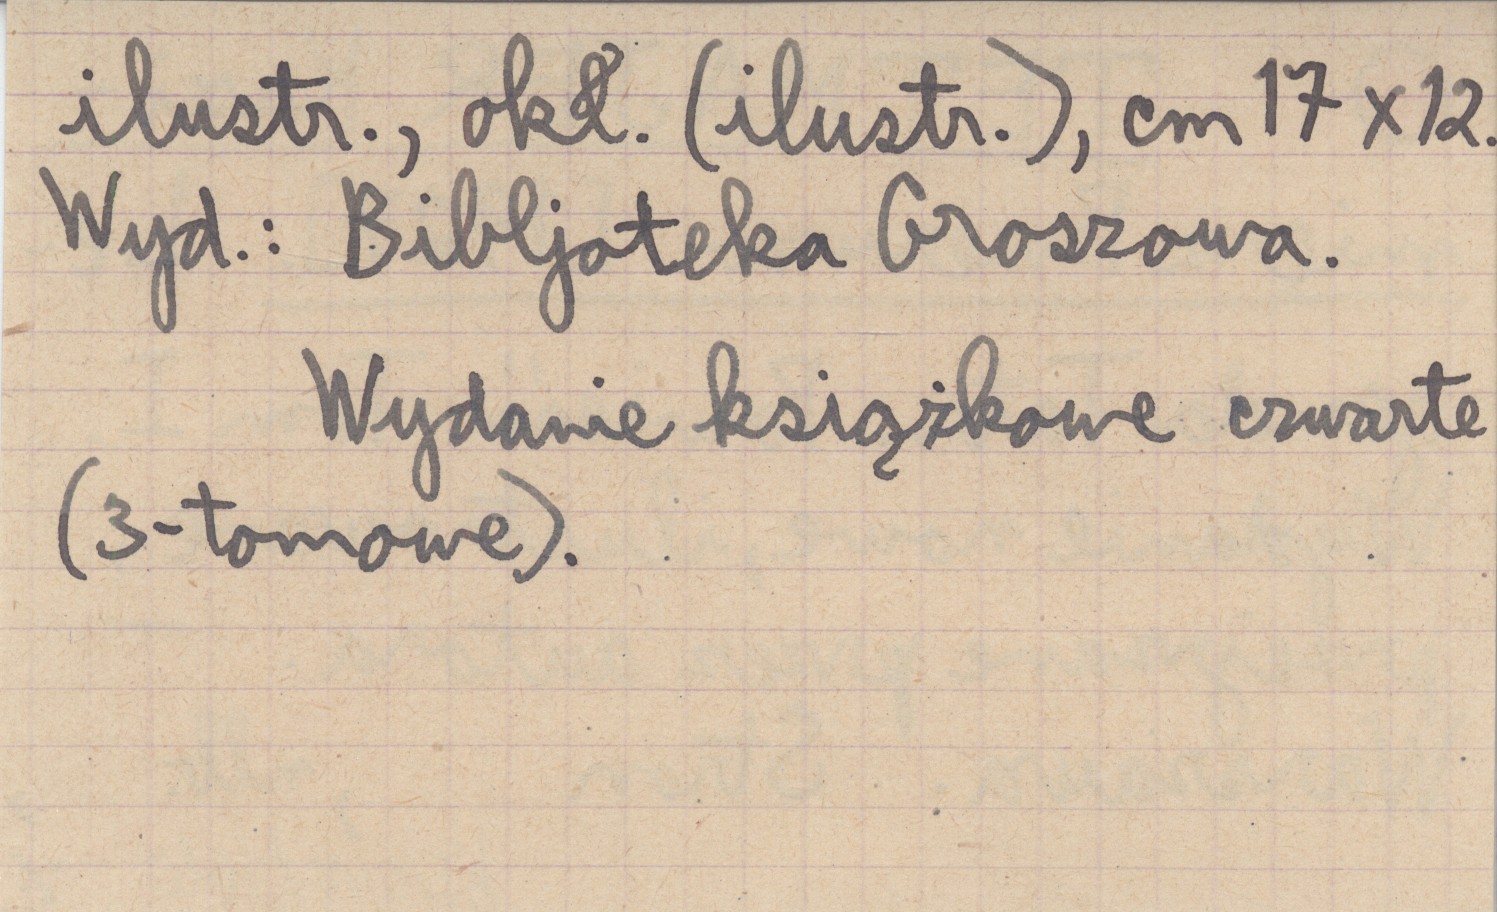 ilustr., okł. (ilustr.), cm 17 x 12.
Wyd.: Bibljoteka Groszowa.
Wydanie książkowe czwarte
(3-tomowe).